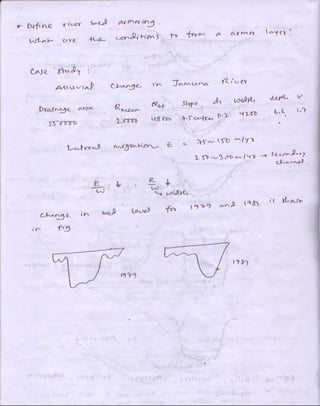 * Define river bed armoring.
What are the conditions to form a armor layer?
Case Study :
Alluvial Change in Jamuna River
Drainage area Qmean Qbf slope ds width depth V
550000 20000 48000 7.5 cm/km 0.2 4200 6.6 1.7
Lateral migration E = 75~150 m/yr
250~300 m/yr → secondary
channel
E/W ↓ . R/W ↓
→ width
Change in bed level for 1979 and 1981 is shown
in fig
1979
1981